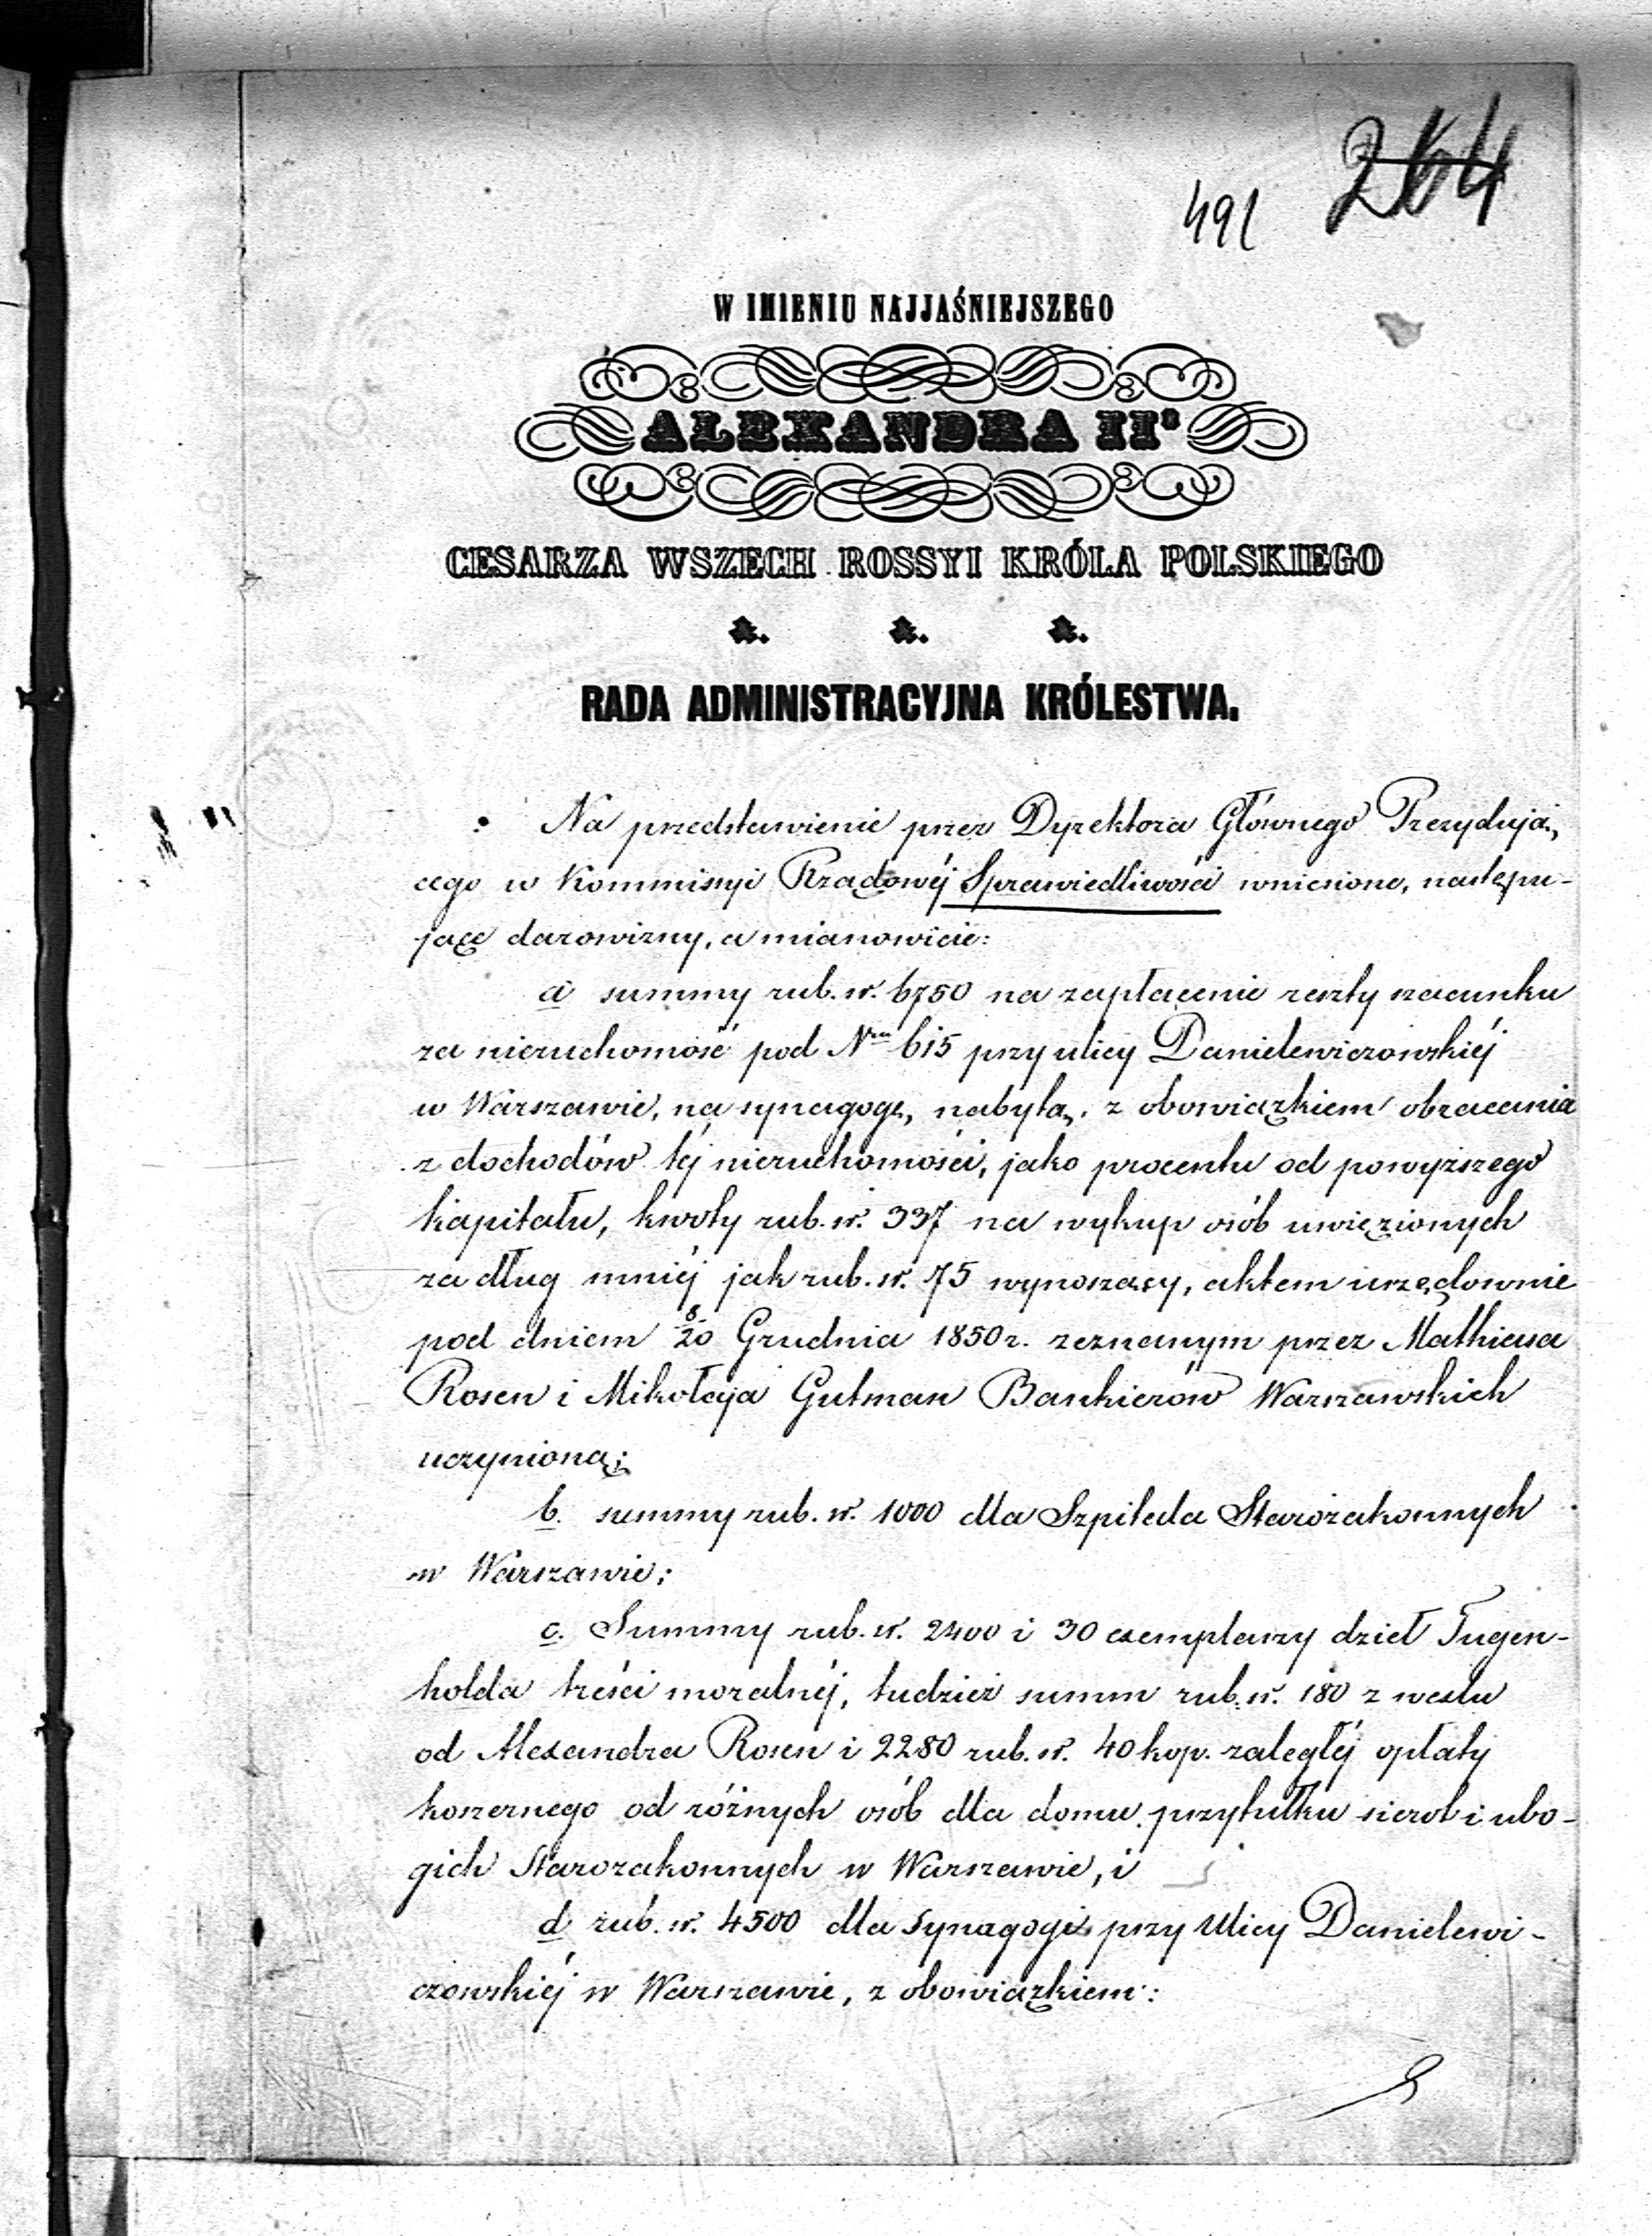 264
491
W IMIENIU NAJJAŚNIEJSZEGO
ALEXANDRA IIº
CESARZA WSZECH ROSSYI KRÓLA POLSKIEGO
&. &. &.
RADA ADMINISTRACYJNA KRÓLESTWA.
Na przedstawienie przez Dyrektora Głównego Prezydują,,
cego w Kommissyi Rządowéj Sprawiedliwości wniesione, następu-
jące darowizny, a mianowicie:
a summy rub. sr. 6750 na zapłacenie reszty szacunku
za nieruchomość pod Nrem 615 przy ulicy Danielewiczowskiéj
w Warszawie, na synagogę, nabytą, z obowiązkiem obracania
z dochodów téj nieruchomości, jako procentu od powyższego
kapitału, kwoty rub. sr. 337 na wykup osób uwięzionych
za dług mniéj jak rub. sr. 75 wynoszący, aktem urzędownie
pod dniem 8/20 Grudnia 1850 r. zeznanym przez Mathiasa
Rosen i Mikołaja Gutman Bankierów Warszawskich
uczyniona;
b. summy rub. sr. 1000 dla Szpitala Starozakonnych
w Warszawie;
c. Summy rub. sr. 2400 i 30 exemplarzy dzieł Tugen-
holda treści moralnéj, tudzież summ rub. sr. 180 z wexlu
od Alexandra Rosen i 2280 rub. sr. 40 kop. zaległéj opłaty
koszernego od różnych osób dla domu przytułku sierot i ubo-
gich Starozakonnych w Warszawie, i
d rub. sr. 4500 dla Synagogi przy Ulicy Danielewi-
czowskiéj w Warszawie, z obowiązkiem: